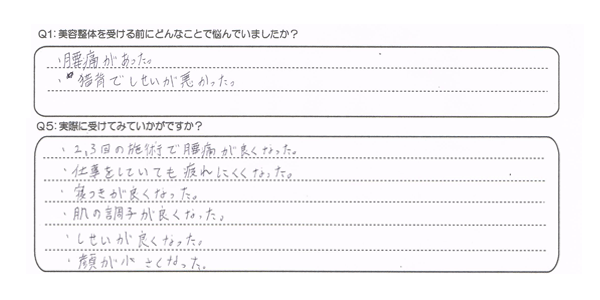 Q1：美容整体を受ける前にどんなことで悩んでいましたか？
・腰痛があった。
・猫背でしせいが悪かった。
Q5：実際に受けてみていかがですか？
・2,3回の施術で腰痛が良くなった。
・仕事をしていても疲れにくくなった。
・寝つきが良くなった。
・肌の調子が良くなった。
・しせいが良くなった。
・顔が小さくなった。